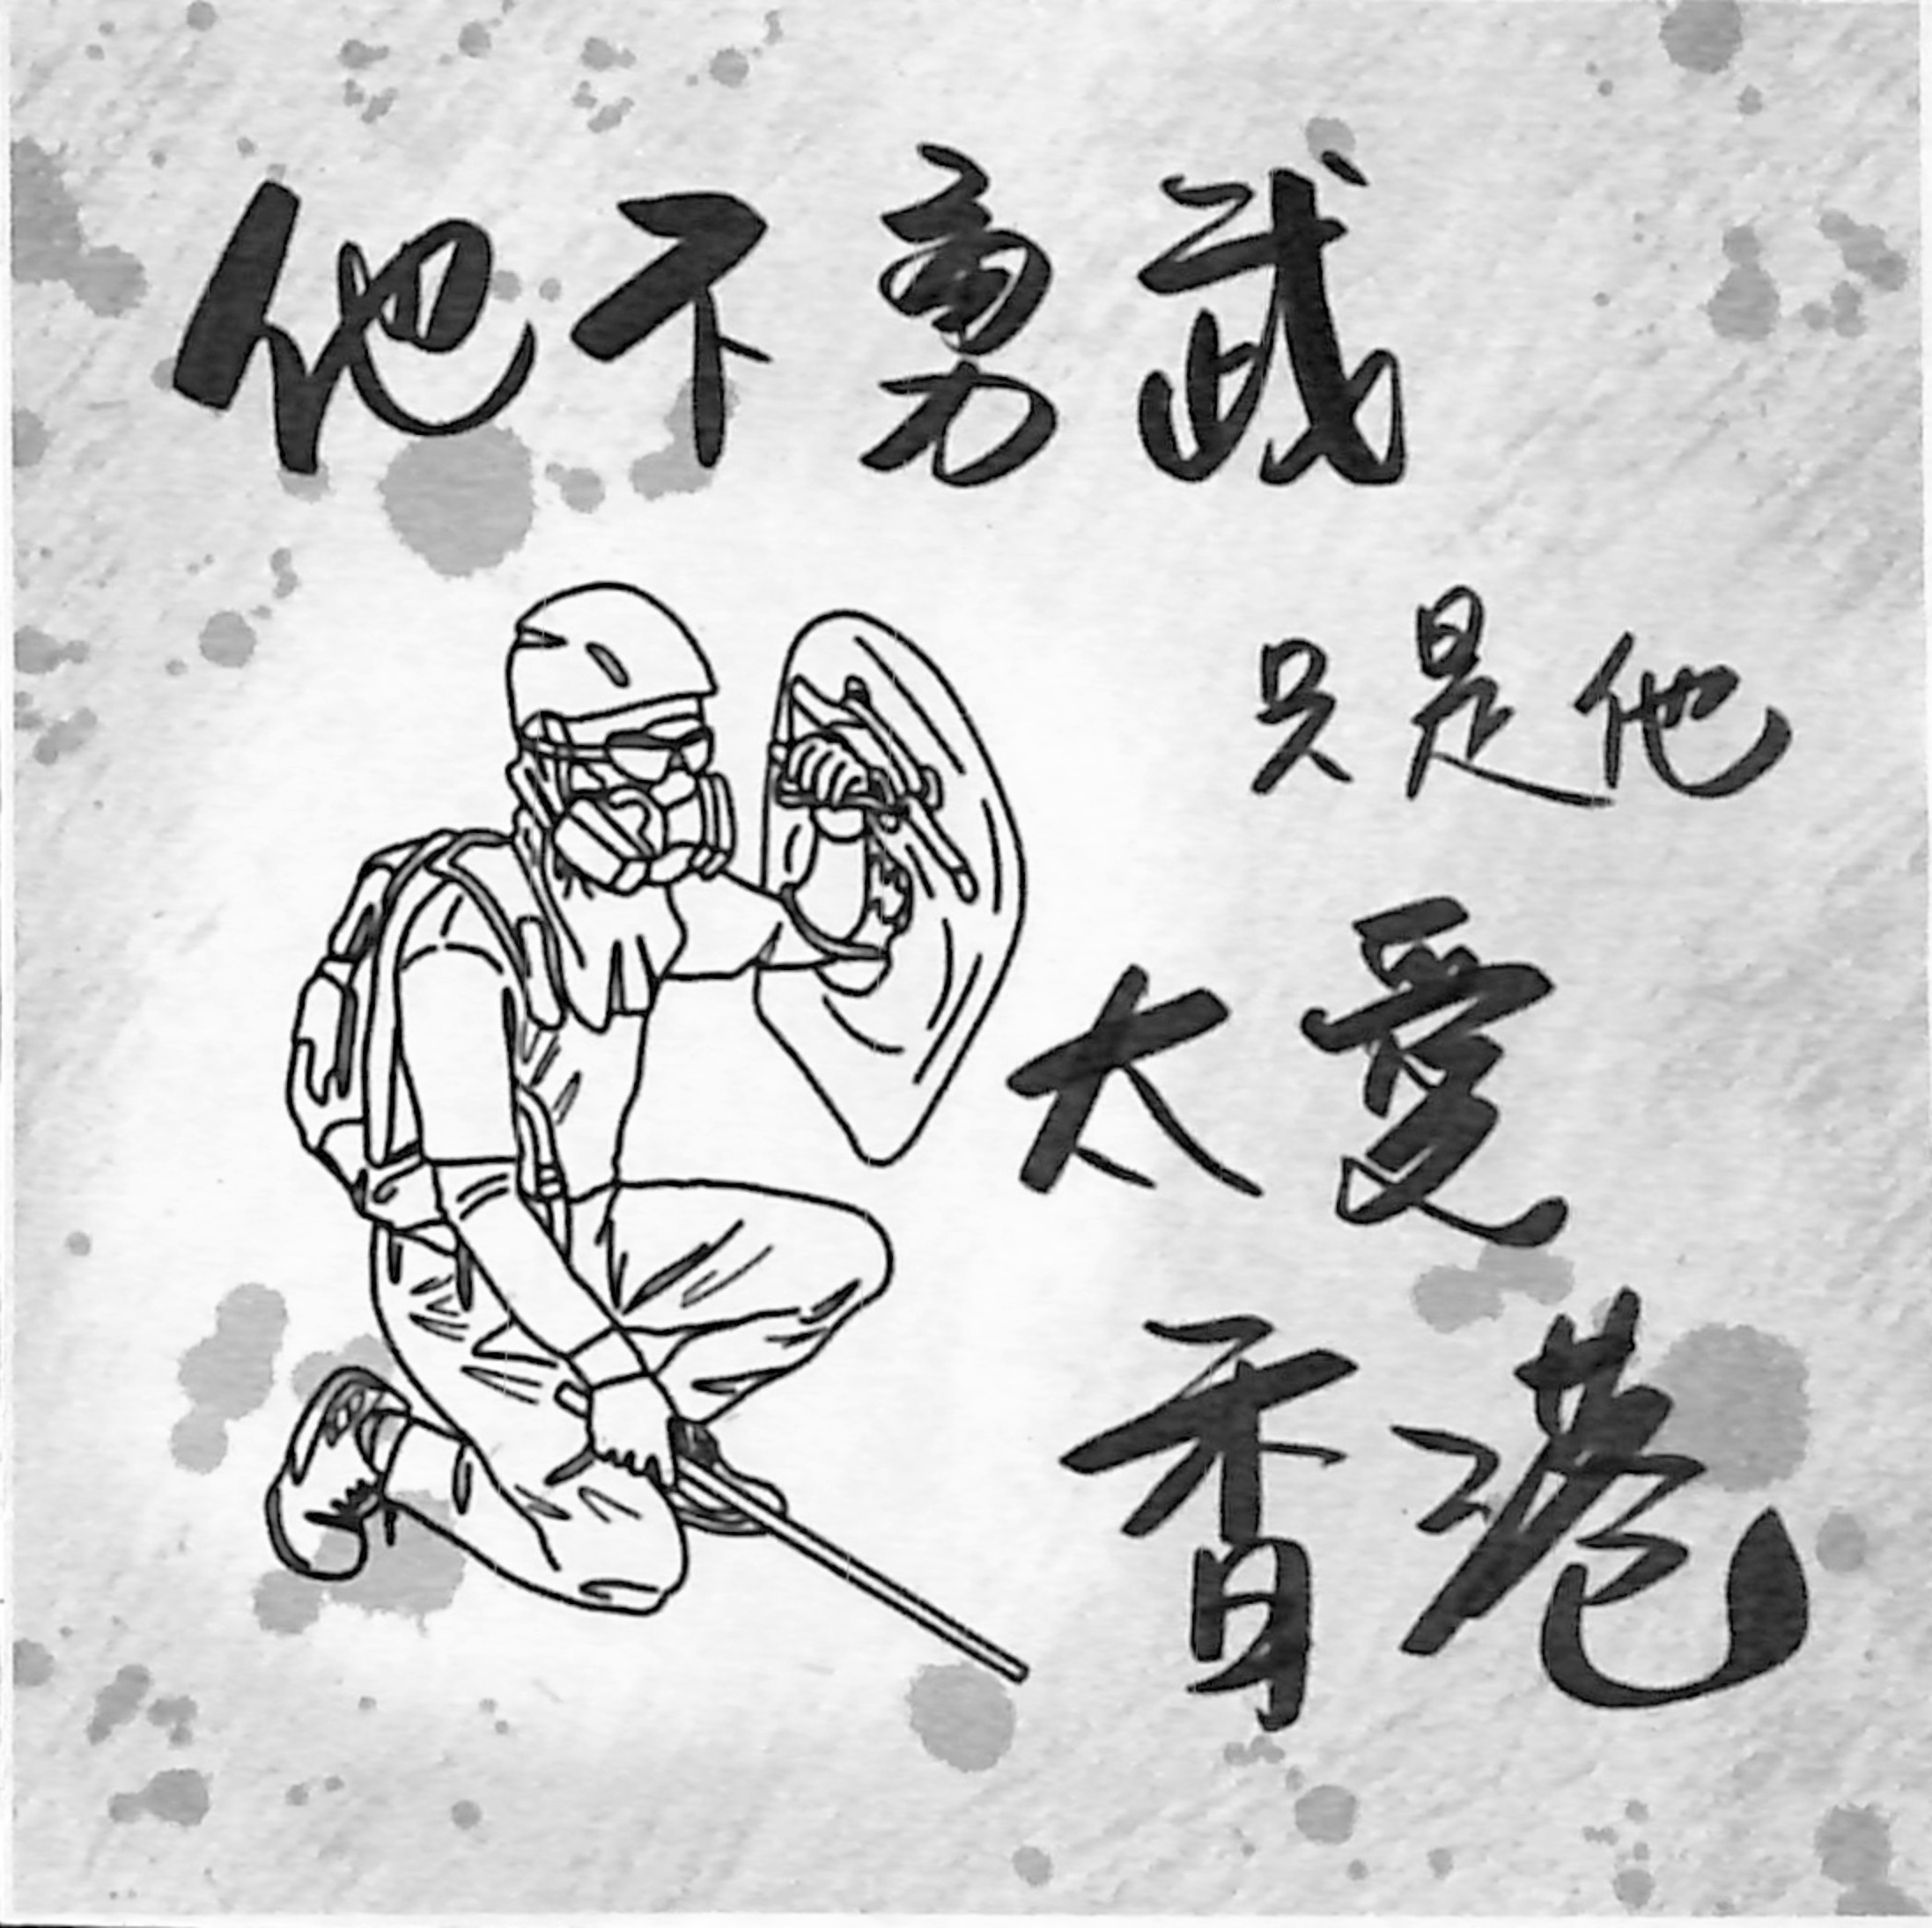 他不勇武
只是他
太愛
香港